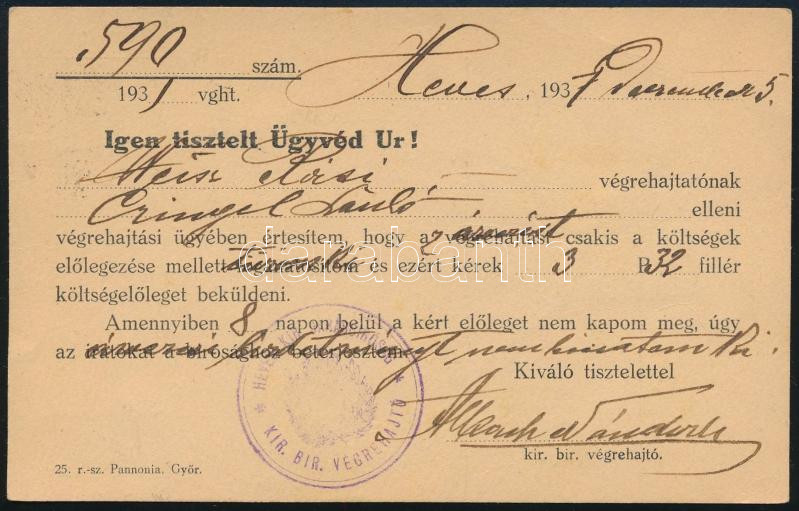 590 szám.
1931 vght.
Heves, 1931 December 5.
Igen tisztelt Ügyvéd Ur!
Weisz Rózsi végrehajtatónak
László elleni
végrehajtási ügyében értesítem, hogy a végrehajtást csakis a költségek
előlegezése mellett foganatosítom és ezért kérek 3 P 32 fillér
költségelőleget beküldeni.
Amennyiben 8 napon belül a kért előleget nem kapom meg, úgy
az iratokat a bírósághoz beterjesztem.
nem ki.
Kiváló tisztelettel
Sándor
kir. bir. végrehajtó.
KIR. BIR. VÉGREHAJTÓ
25. r.-sz. Pannonia, Győr.
darabanth